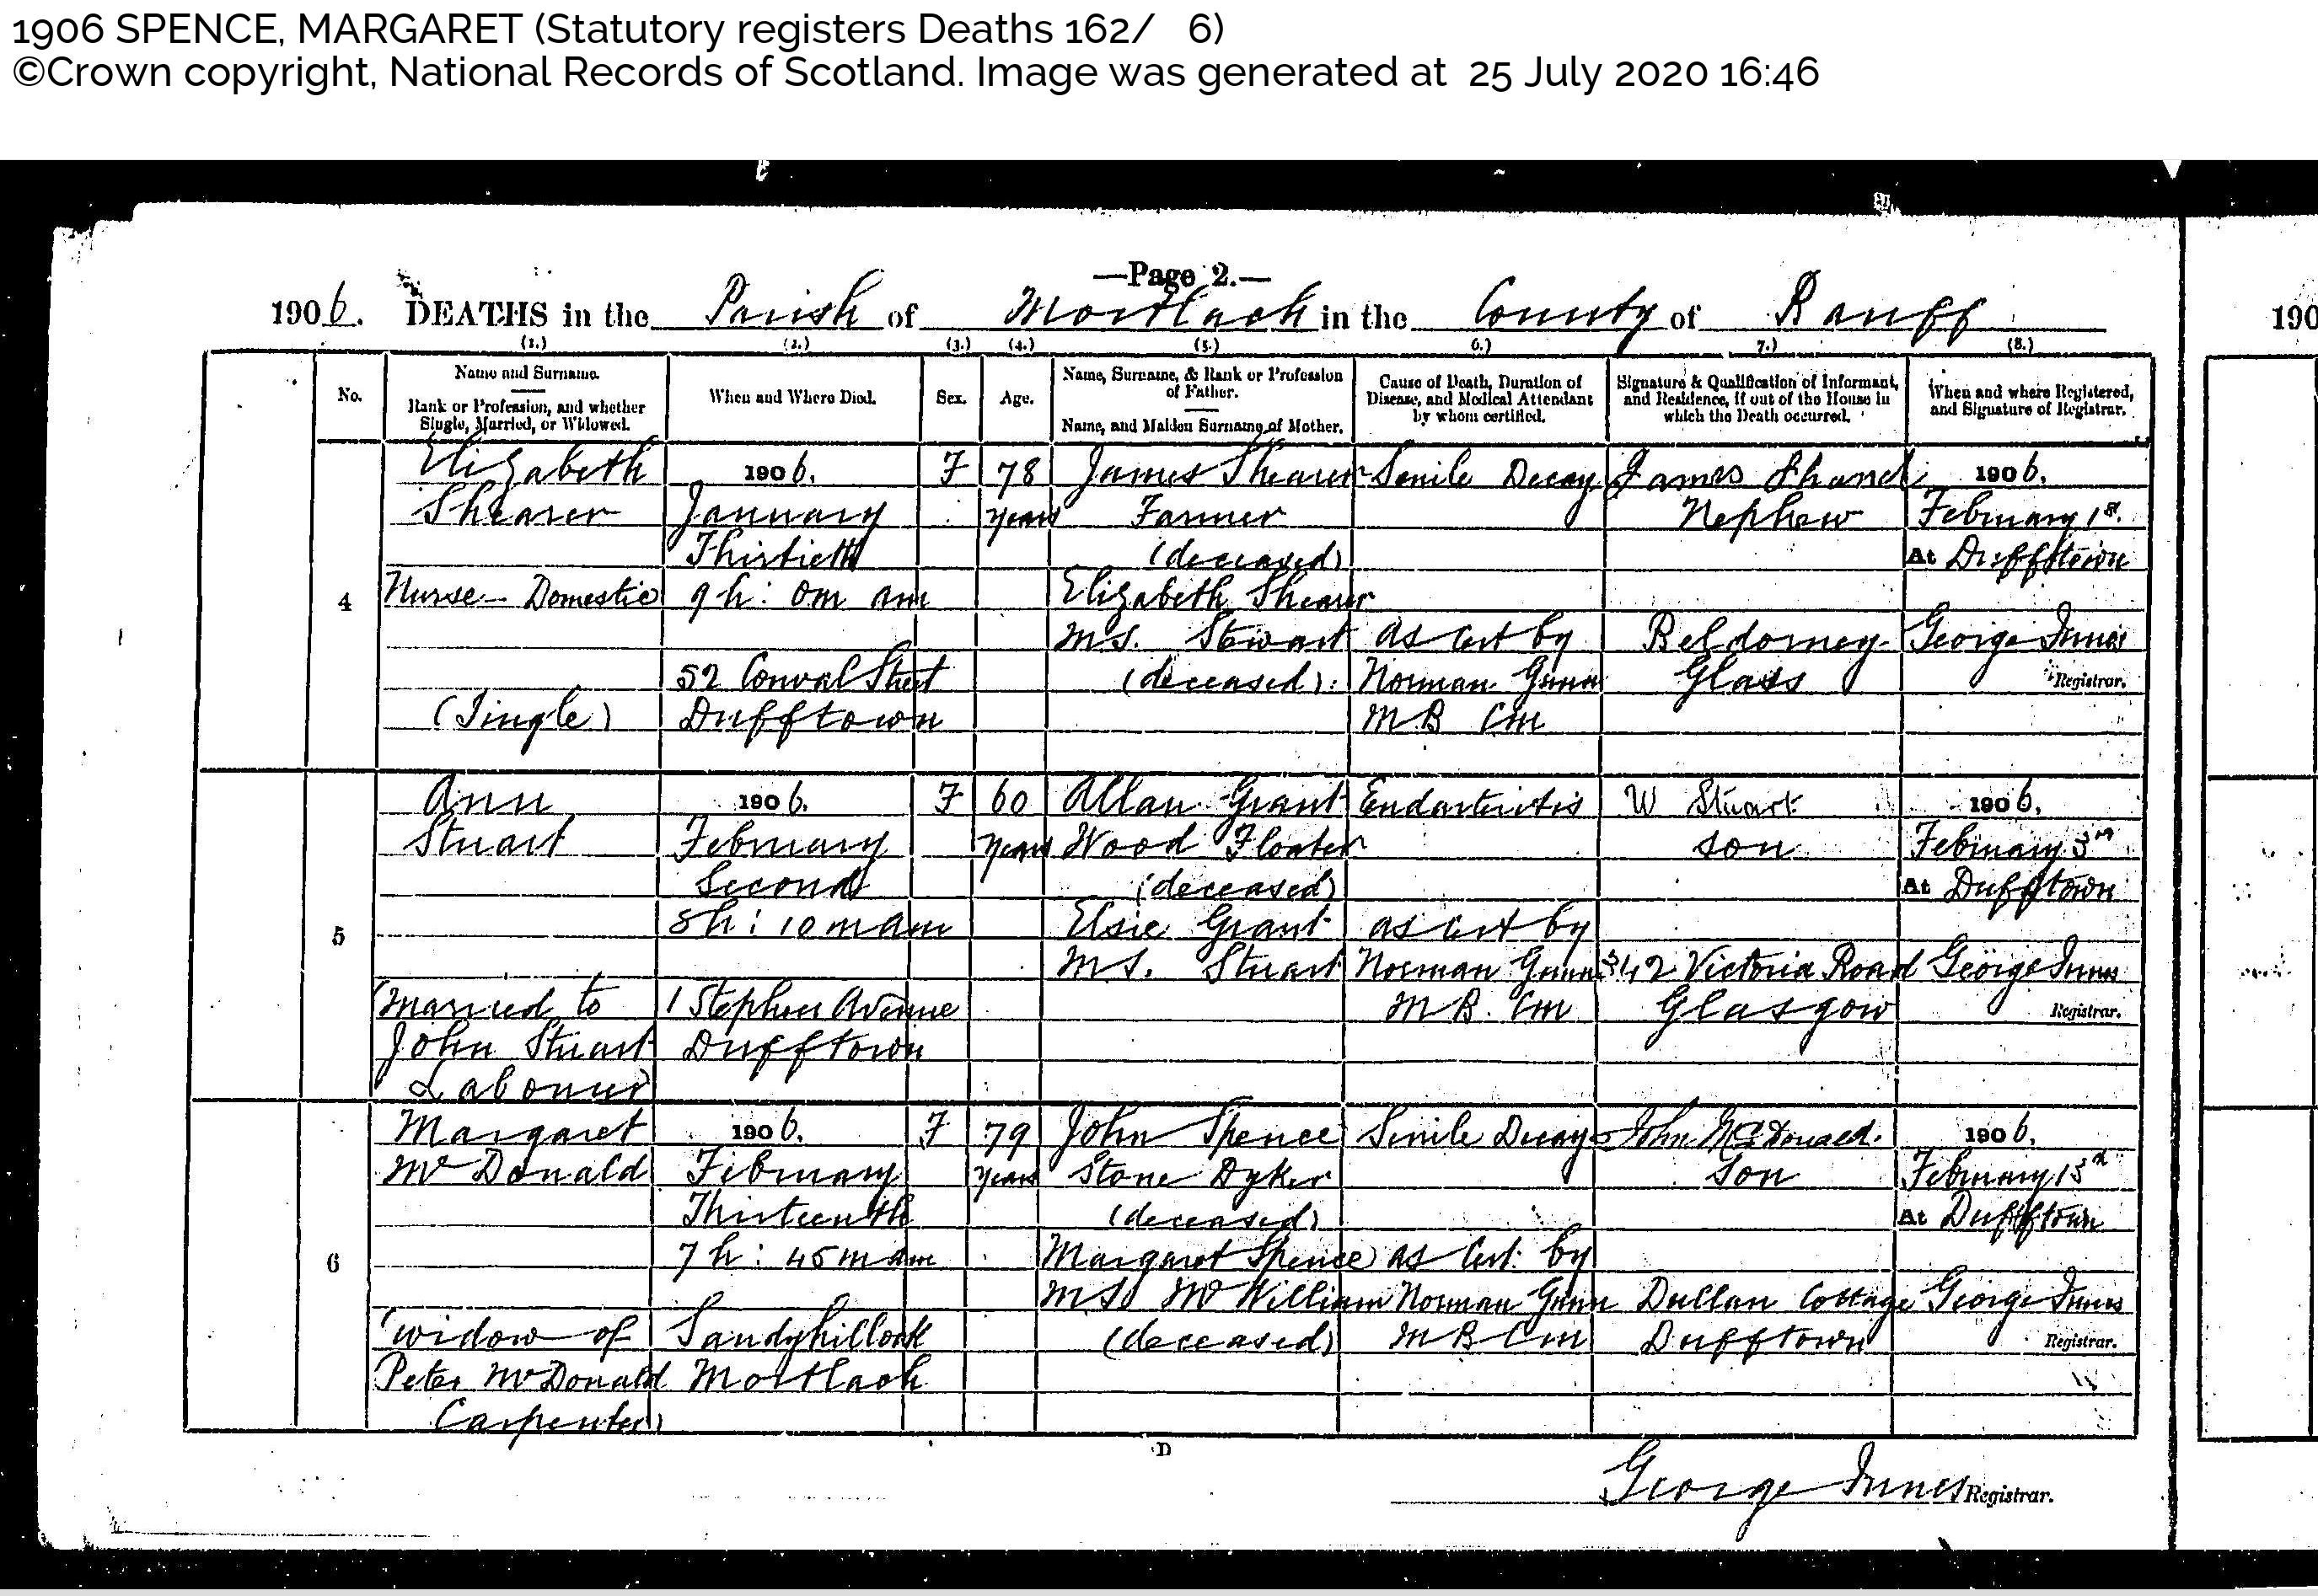 1906 SPENCE, MARGARET (Statutory registers Deaths 162/ 6)
©Crown copyright, National Records of Scotland. Image was generated at 25 July 2020 16:46
—Page 2.—
1906. DEATHS in the Parish of Mortlach in the County of Banff
190
(1.) (2.) (3.) (4.) (5.) 6.) 7.) (8.)
No.
Name and Surname.
Rank or Profession, and whether
Single, Married, or Widowed.
When and Where Died.
Sex.
Age.
Name, Surname, & Rank or Profession
of Father.
Name, and Maiden Surname of Mother.
Cause of Death, Duration of
Disease, and Medical Attendant
by whom certified.
Signature & Qualification of Informant,
and Residence, if out of the House in
which the Death occurred.
When and where Registered,
and Signature of Registrar.
4
Elizabeth
Shearer
Nurse - Domestic
(Single)
1906.
January
Thirtieth
9h: 0m am
52 Conval Street
Dufftown
F
78
years
James Shearer
Farmer
(deceased)
Elizabeth Shearer
M.S. Stewart
(deceased).
Senile Decay
As cert by
Norman Gunn
M.B CM
James Shand
Nephew
Beldorney
Glass
1906.
February 1st.
At Dufftown
George Innes
Registrar.
5
Ann
Stuart
(Married to
John Stuart
Labourer)
1906.
February
Second
8h: 10m am
1 Stephen Avenue
Dufftown
F
60
years
Allan Grant
Wood Floater
(deceased)
Elsie Grant
M.S. Stuart
Endarteritis
as cert by
Norman Gunn
M B. CM
W Stuart
son
342 Victoria Road
Glasgow
1906.
February 3rd
At Dufftown
George Innes
Registrar.
6
Margaret
McDonald
(widow of
Peter McDonald
Carpenter)
1906.
February
Thirteenth
7h: 45m am
Sandyhillock
Mortlach
F
79
years
John Spence
Stone Dyker
(deceased)
Margaret Spence
MS McWilliam
(deceased)
Senile Decay
as Cert. by
Norman Gunn
M B CM
John McDonald.
Son
Dullan Cottage
Dufftown
1906.
February
At Dufftown
George Innes
Registrar.
D
George Innes Registrar.